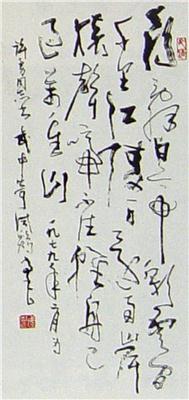 朝辞白帝彩雲间
千里江陵一日还两岸
猿聲啼不住轻舟已
過萬重山 一九七九年二月为
同志书 武中奇